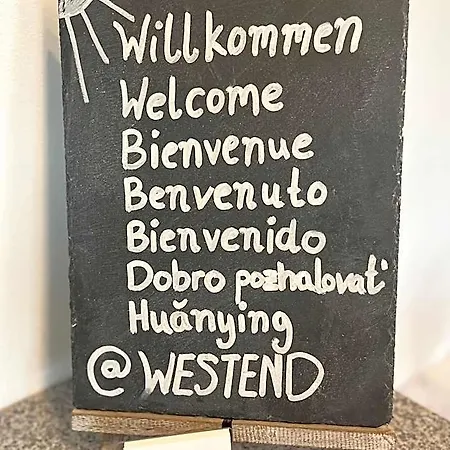 Willkommen
Welcome
Bienvenue
Benvenuto
Bienvenido
Dobro pozhalovat'
Huănying
@ WESTEND